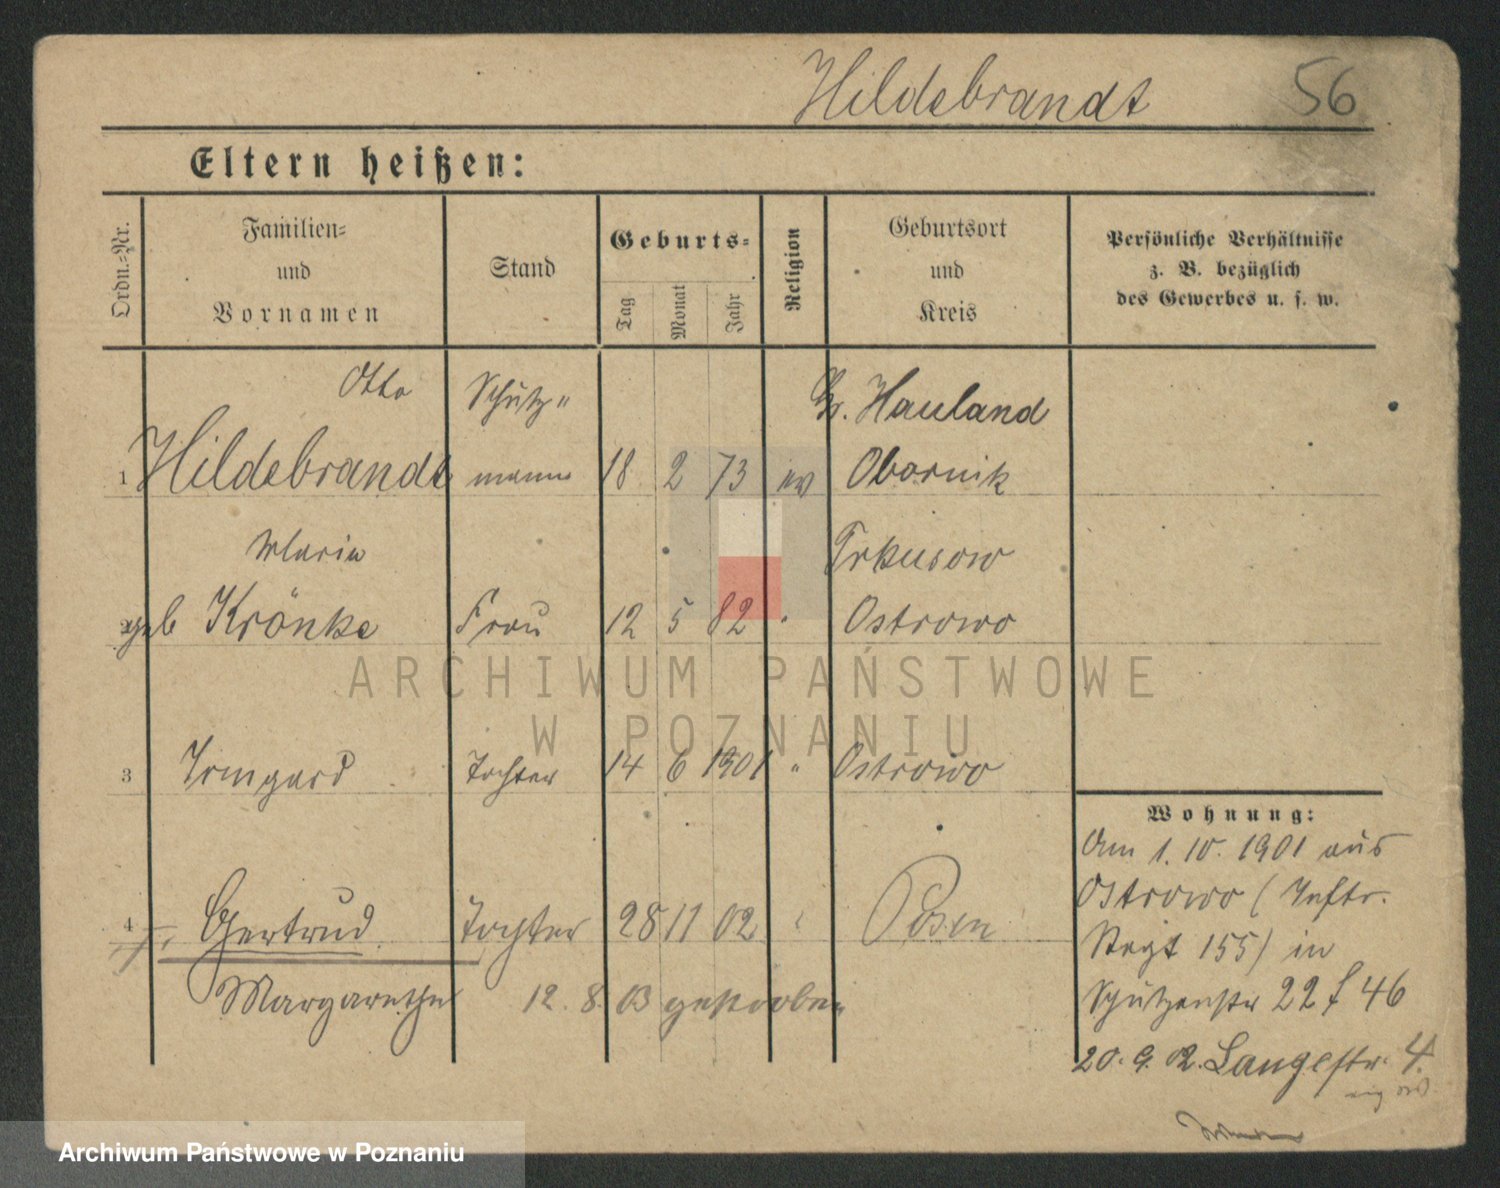 Hildebrandt 56
Eltern heißen:
Ordn.-Nr.
Familien-
und
Vornamen
Stand
Geburts-
Tag
Monat
Jahr
Religion
Geburtsort
und
Kreis
Persönliche Verhältnisse
z. B. bezüglich
des Gewerbes u. s. w.
Otto Schutz- Gr. Hauland
1 Hildebrandt mann 18 2 73 ev Obornik
Maria
2 geb Krönke Frau 12 5 82 " Ostrowo
ARCHIWUM PAŃSTWOWE
W POZNANIU
3 Irmgard Tochter 14 6 1901 " Ostrowo
Wohnung:
Am 1. 10. 1901 aus
Ostrowo (Inftr.
Regt 155) in
Schützenstr 22 f 46
20. 9. 02. Langestr. 4.
4 Gertrud Tochter 28 11 02 Posen
Margarethe 12. 8. 03 gestorben
Archiwum Państwowe w Poznaniu